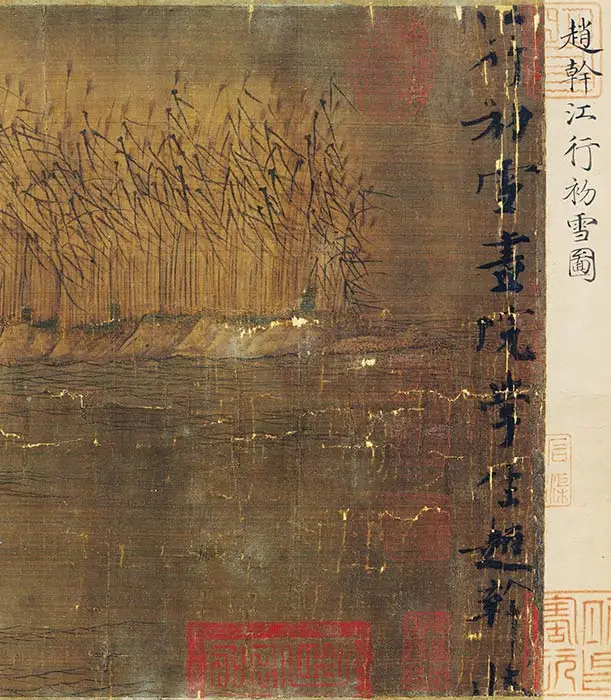 趙幹江行初雪圖
江行初雪畫院學生趙幹狀